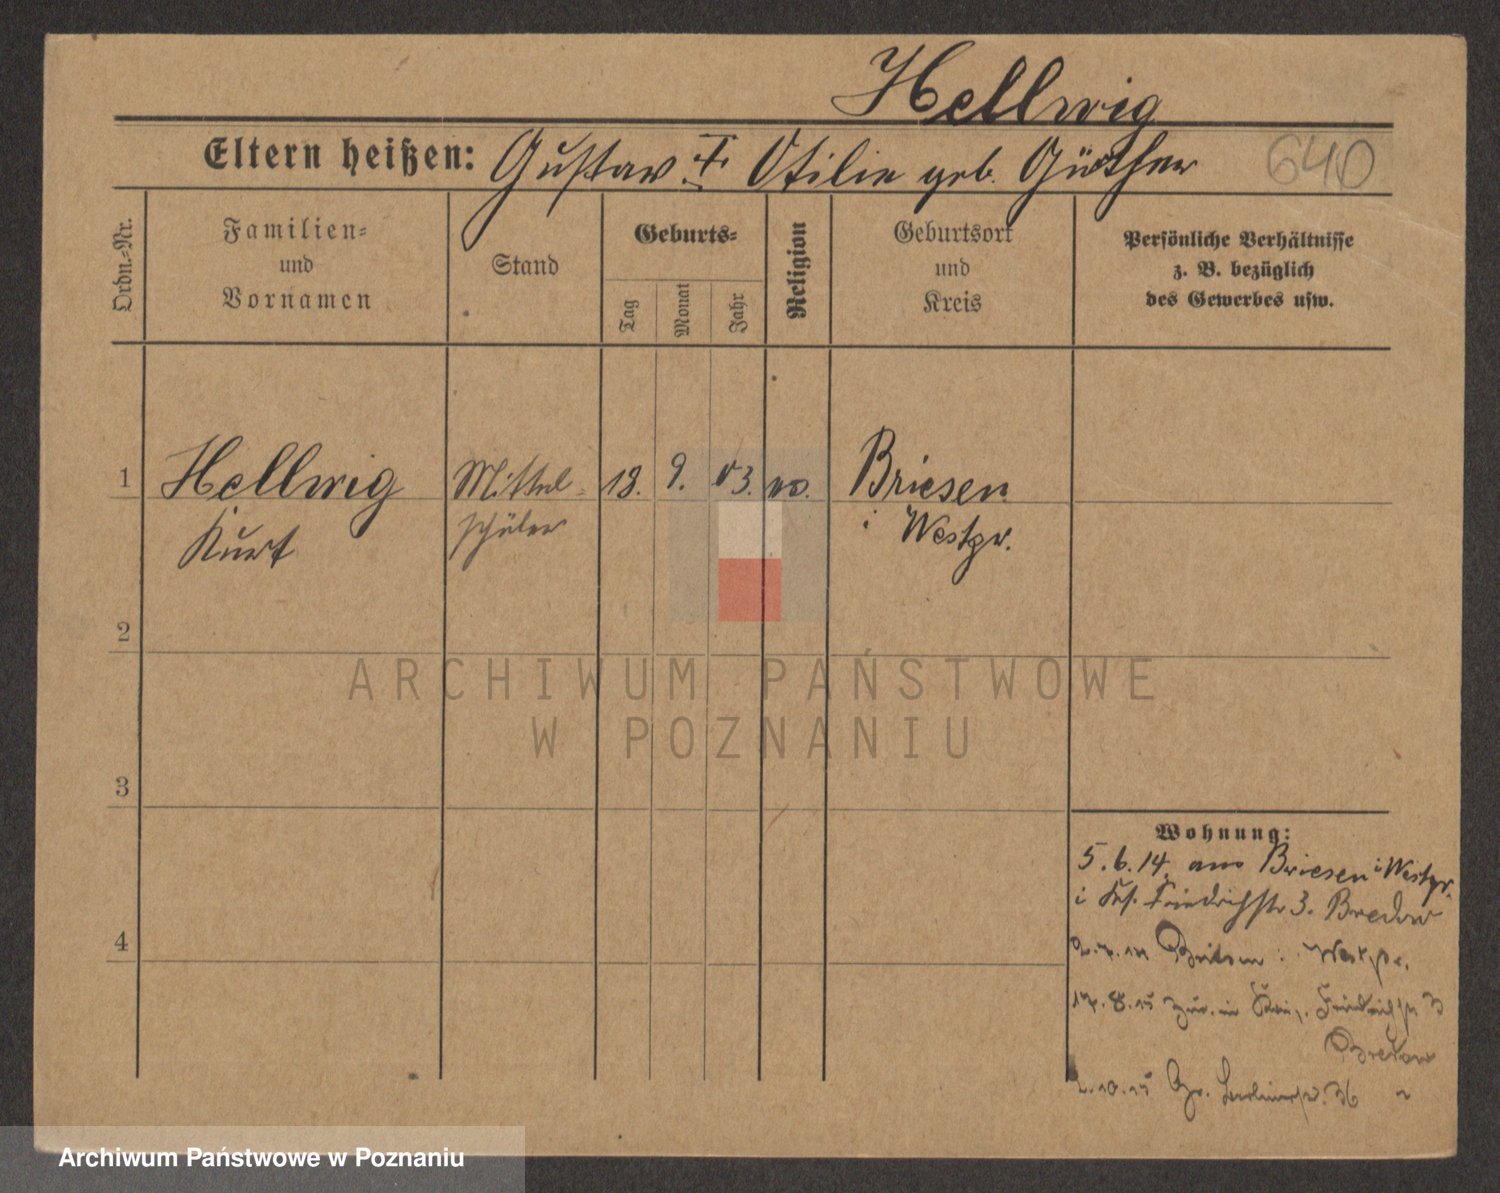 Hellwig
Eltern heißen: Gustav † Otilie geb. Günther
640
Ordn.-Nr.
Familien-
und
Vornamen
Stand
Geburts-
Tag
Monat
Jahr
Religion
Geburtsort
und
Kreis
Persönliche Verhältnisse
z. B. bezüglich
des Gewerbes usw.
1
Hellwig
Kurt
Mittel-
schüler
18. 9. 03.
Briesen
i Westpr.
2
3
4
Wohnung:
5.6.14. aus Briesen i Westpr.
i Friedrichstr 3. Bredow
Briesen i. Westpr.
17.8.15 zur. in Friedrichstr 3
Bredow
2.10.15 Gr. Berlinerstr. 36
ARCHIWUM PAŃSTWOWE
W POZNANIU
Archiwum Państwowe w Poznaniu